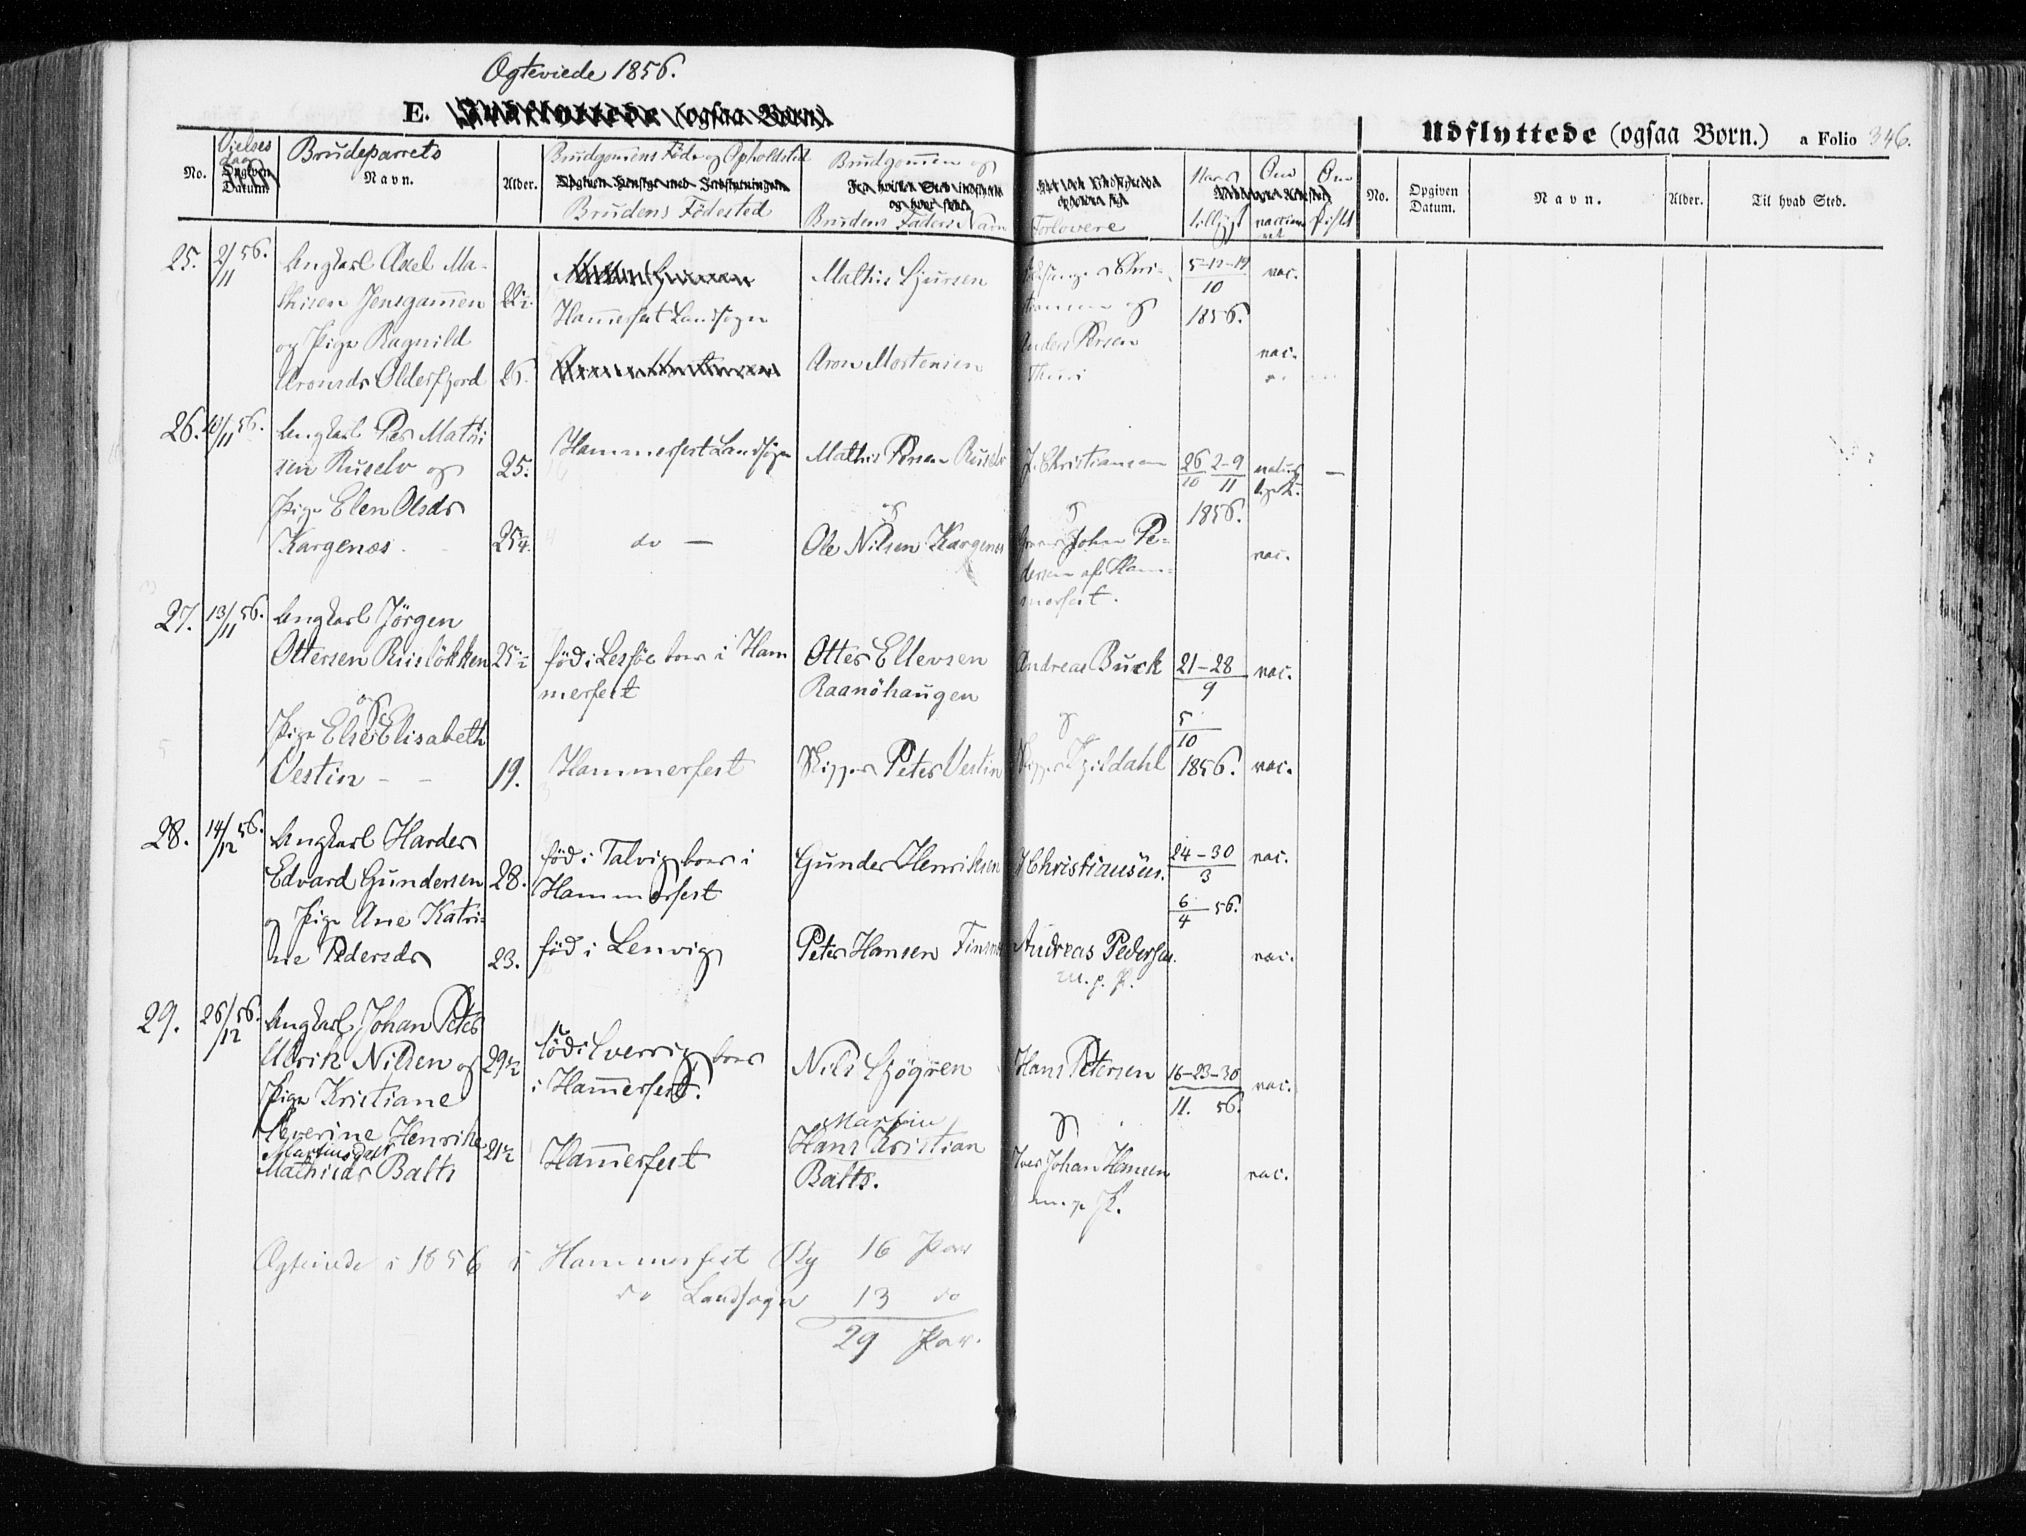 Ogteviede 1856.
E. Indflyttede (ogsaa Børn).
Udflyttede (ogsaa Børn.) a Folio 346.
No.
Vielses dag
Opgiven Datum
Brudeparrets
Navn.
Alder.
Brudgomens Føde og Opholdsted
Brudens Födested
Brudgommen og
Brudens Faders Navn
Forlovere
tillyst
Om
Om
No.
Opgiven Datum.
Navn.
Alder.
Til hvad Sted.
25. 2/11 56. Ungkarl Axel Ma-
thisen Jensgammen 22½
og Pige Ragnild
Aronsdr Olderfjord 26.
Hammerfest Landsogn
Mathis Sjursen
Aron Mortensen
Anders Persen
5-12-19
10
1856.
vac.
vac.
26. 10/11 56. Ungkarl Per Mathi
sen Ruselv og 25.
Pige Elen Olsdr
Kargenæs. 25¼.
Hammerfest Landsogn
do —
Mathis Persen Ruselv
og
Ole Nilsen Kargenes
J. Christiansen
og
John Pe-
dersen af Ham-
merfest.
26 2-9
10 11
1856.
—
vac.
27. 13/11 56. Ungkarl Jörgen
Ottersen Riisløkken 25½
og
Pige Else Elisabeth
Vestin - - 19.
föd i Lesföe boer i Ham
merfest
Hammerfest
Otter Ellevsen
Raanöhaugen
Skipper Peter Vestin
Andreas Buck
og
Skipper Gjildahl
21-28
9
5
10
1856.
vac.
vac.
28. 14/12 56. Ungkarl Harder
Edvard Gundersen 28.
og Pige Ane Katri-
ne Pedersdr 23.
föd i Talvig boer i
Hammerfest
föd i Lenvig
Gunder Henriksen
Peter Hansen
J Christiansen.
Andreas Pedersen.
m. p. P.
24-30
3
6
4 56.
vac.
vac.
29. 26/12 56. Ungkarl Johan Peter
Ulrik Nilsen og 29½
Pige Kristiane
Severine Henrike
Martinsdatt
Mathisdr Balts 21½
föd i Sverrig boer
i Hamerfest.
Hamerfest
Nils Sjögren
Martin
Hans Kristian
Balts.
Hans Petersen
og
Iver Johan Hansen
m. p. P.
16-23-30
11. 56.
vac.
vac.
Ogteviede i 1856 i Hammerfest By 16 Par
do Landsogn 13 do
29 Par.